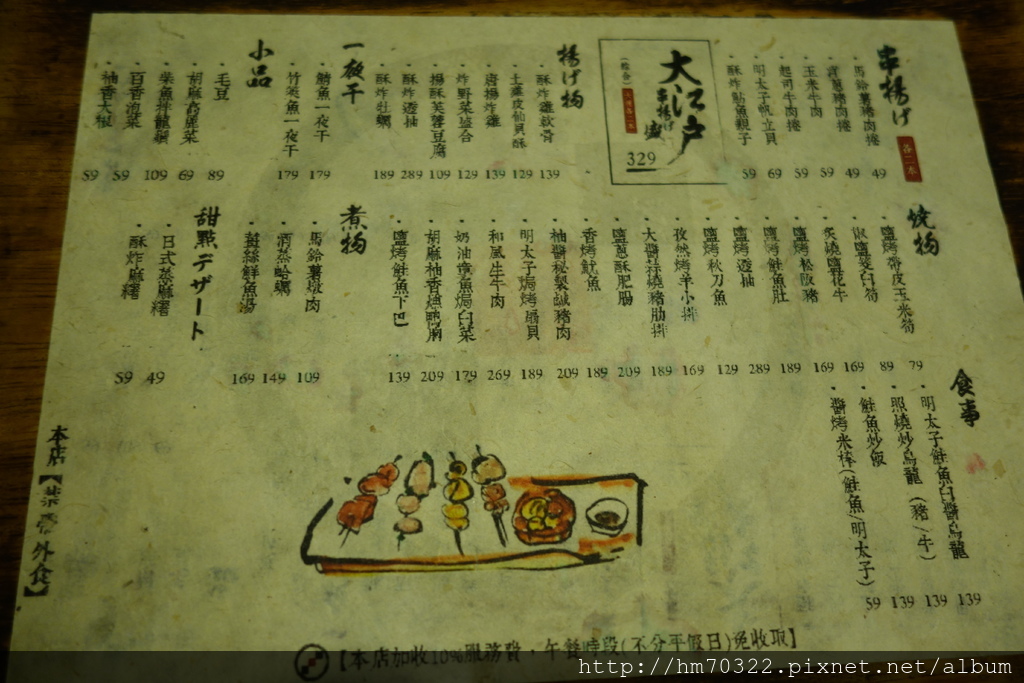 串揚げ
各二本
馬鈴薯豬肉捲 49
青蔥豬肉捲 49
玉米牛肉 59
起司牛肉捲 59
明太子帆立貝 69
酥炸鮎魚親子 59
大江戶
串揚げ
盛
329
揚げ物
酥炸雞軟骨 139
土雞皮仙貝酥 129
唐揚炸雞 139
炸野菜盛合 129
楊酥芙蓉豆腐 109
酥炸透抽 289
酥炸牡蠣 189
一夜干
鯖魚一夜干 179
竹筴魚一夜干 179
小品
毛豆 89
胡麻高麗菜 69
柴魚拌龍鬚 109
百香泡菜 59
柚香大根 59
燒物
鹽烤帶皮玉米筍 79
椒鹽茭白筍 89
炙燒鹽花牛 169
鹽烤松阪豬 169
鹽烤鮭魚肚 189
鹽烤透抽 289
鹽烤秋刀魚 129
孜然烤羊小排 169
大醬蒜燒豬肋排 189
鹽蔥酥肥腸 209
香烤魷魚 189
柚醬秘製鹹豬肉 209
明太子焗烤扇貝 189
和風生牛肉 269
奶油章魚焗白菜 179
胡麻柚香燻鴨胸 209
鹽烤鮭魚下巴 139
煮物
馬鈴薯燉肉 109
酒蒸蛤蠣 149
薑絲鮮魚湯 169
甜點デザート
日式蒸麻糬 49
酥炸麻糬 59
食事
明太子鮭魚白醬烏龍 139
照燒炒烏龍(豬/牛) 139
鮭魚炒飯 139
醬烤米棒(鮭魚/明太子) 59
本店【禁帶外食】
【本店加收10%服務費,午餐時段(不分平假日)免收取】
http://hm70322.pixnet.net/album